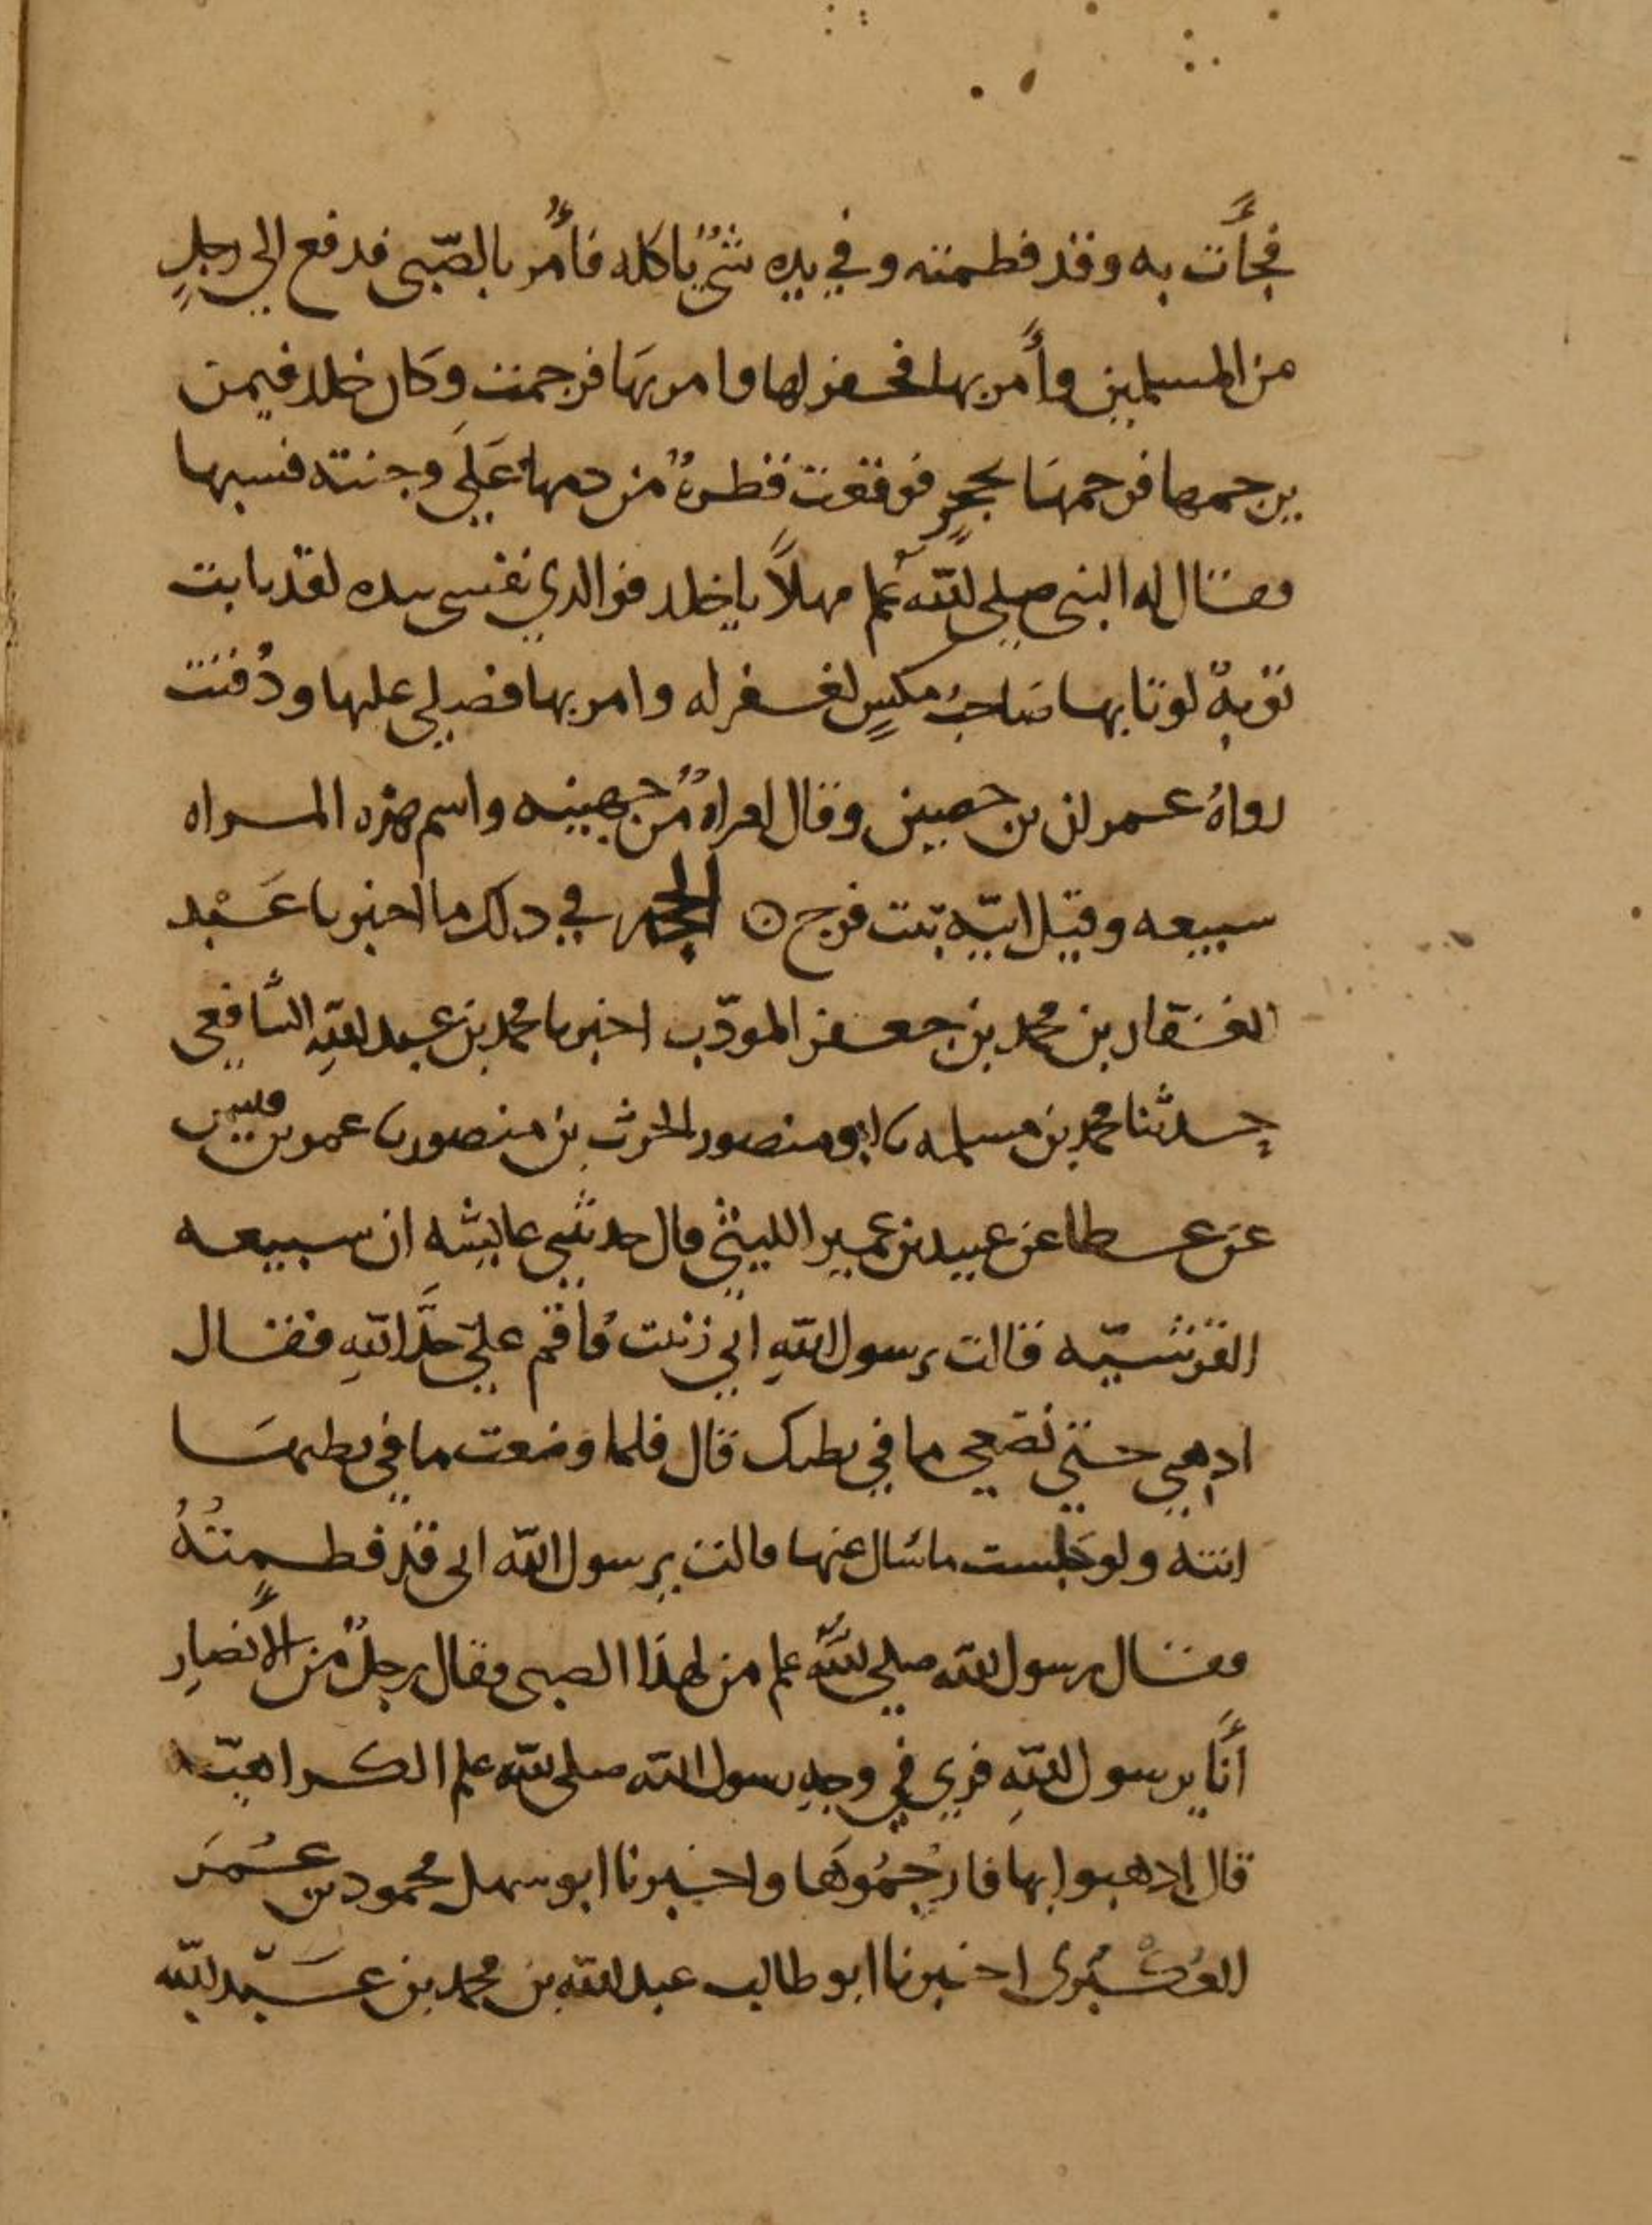 فجأت به وقد فطمته وفي يده شيٌ ياكله فأمر بالصّبي فدفع الي رجلٍ
من المسلمين وأمر بها فحفر لها وامر بهَا فرجمت وكان خلد فيمن
يرجمها فرجمهَا بحجرٍ فوقعت قطرةٌ من دمها عَلَي وجنته فسبها
فقال له النبي صلي اللّه علم مهلاً يا خلد فوالدي نفسي بيده لقد تابت
توبةً لو تابها صَاحبُ مكسٍ لغفر له وامر بها فصلي عليها ودُفنت
رواهُ عمران بن حصين وقال امراةٌ من جهينه واسم هذه المراه
سبيعه وقيل ابيّه بنت فرج ۞ الحجه في دلك ما اخبرنا عَبْد
الغفار بن محمد بن جعفر المودّب اخبرنا محمد بن عبد اللّهِ الشافعي
حدثنا محمد بن مسلمه نا ابو منصور الحرث بن منصور نا عمر بن قيس
عن عطا عن عبيد بن عمير الليثي قال حدثتني عايشه ان سبيعه
القرشيّه قالت يرسول اللّهِ اني زنيت فأقم عليّ حدَّ اللّهِ فقال
ادهبي حتي تضعي ما في بطنك قال فلما وضعت ما في بطنهَا
اتته ولو جلست ما سال عنها قالت يرسول اللّه اني قد فطمتُهُ
فقال رسول اللّه صلي اللّه علم من لهذا الصبي فقال رجلٌ من الأنصارِ
أنَا يرسول اللّهِ فري في وجهِ رسول اللّه صلي اللّه علم الكراهيّه
قال ادهبوا بها فارجُمُوهَا واخبرنا ابو سهل محمود بن عُمَر
العُكْبُري اخبرنا ابو طالب عبد اللّه بن محمد بن عَبْد اللّه